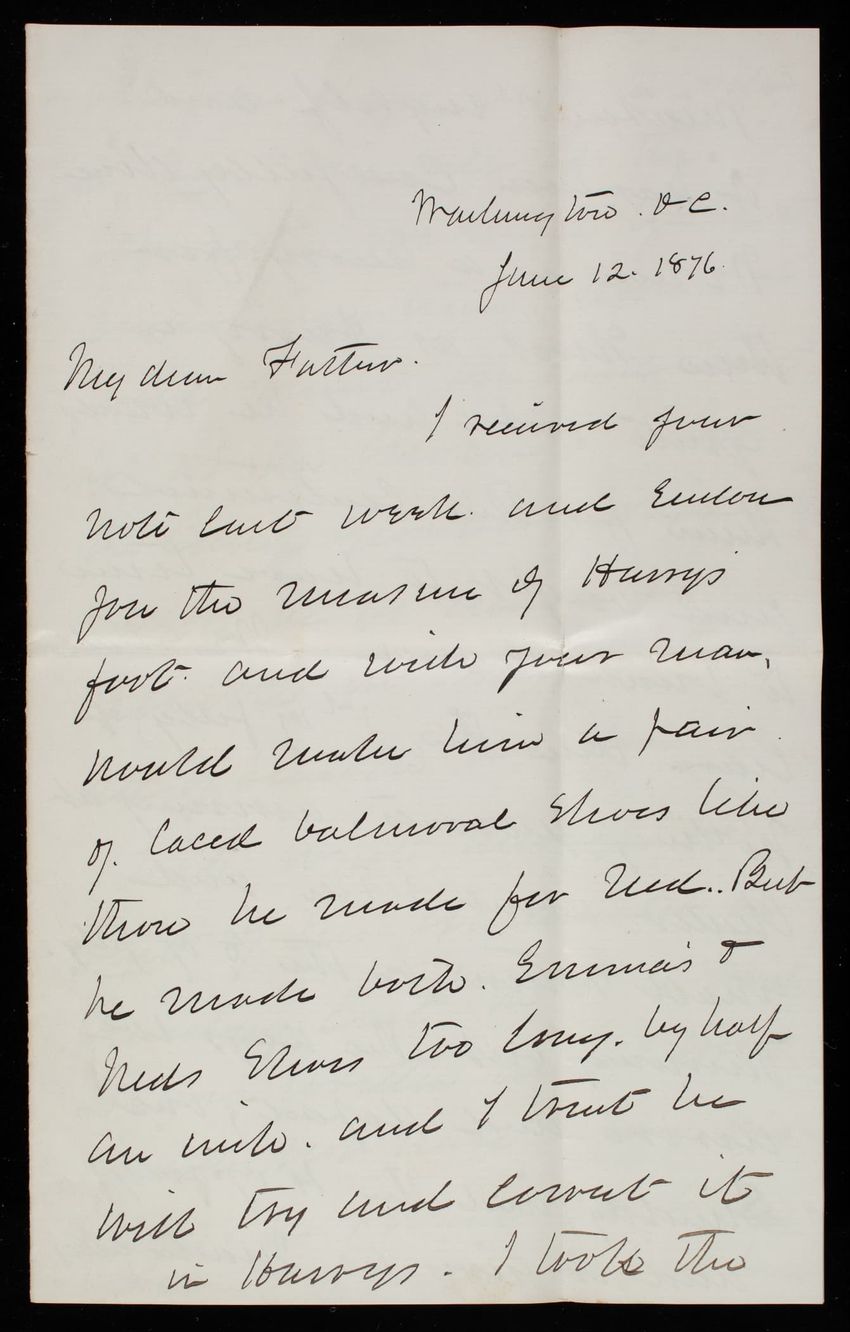 Washington. D C.
June 12. 1876.
My dear Father.
I received your
note last week. and Enclose
you the measure of Harry's
foot. and wish your man,
would make him a pair
of. laced balmoral Shoes like
those he made for Ned.. But
he made both. Emma's &
Neds Shoes too long. by half
an inch. and I trust he
will try and correct it
in Harrys. I took the